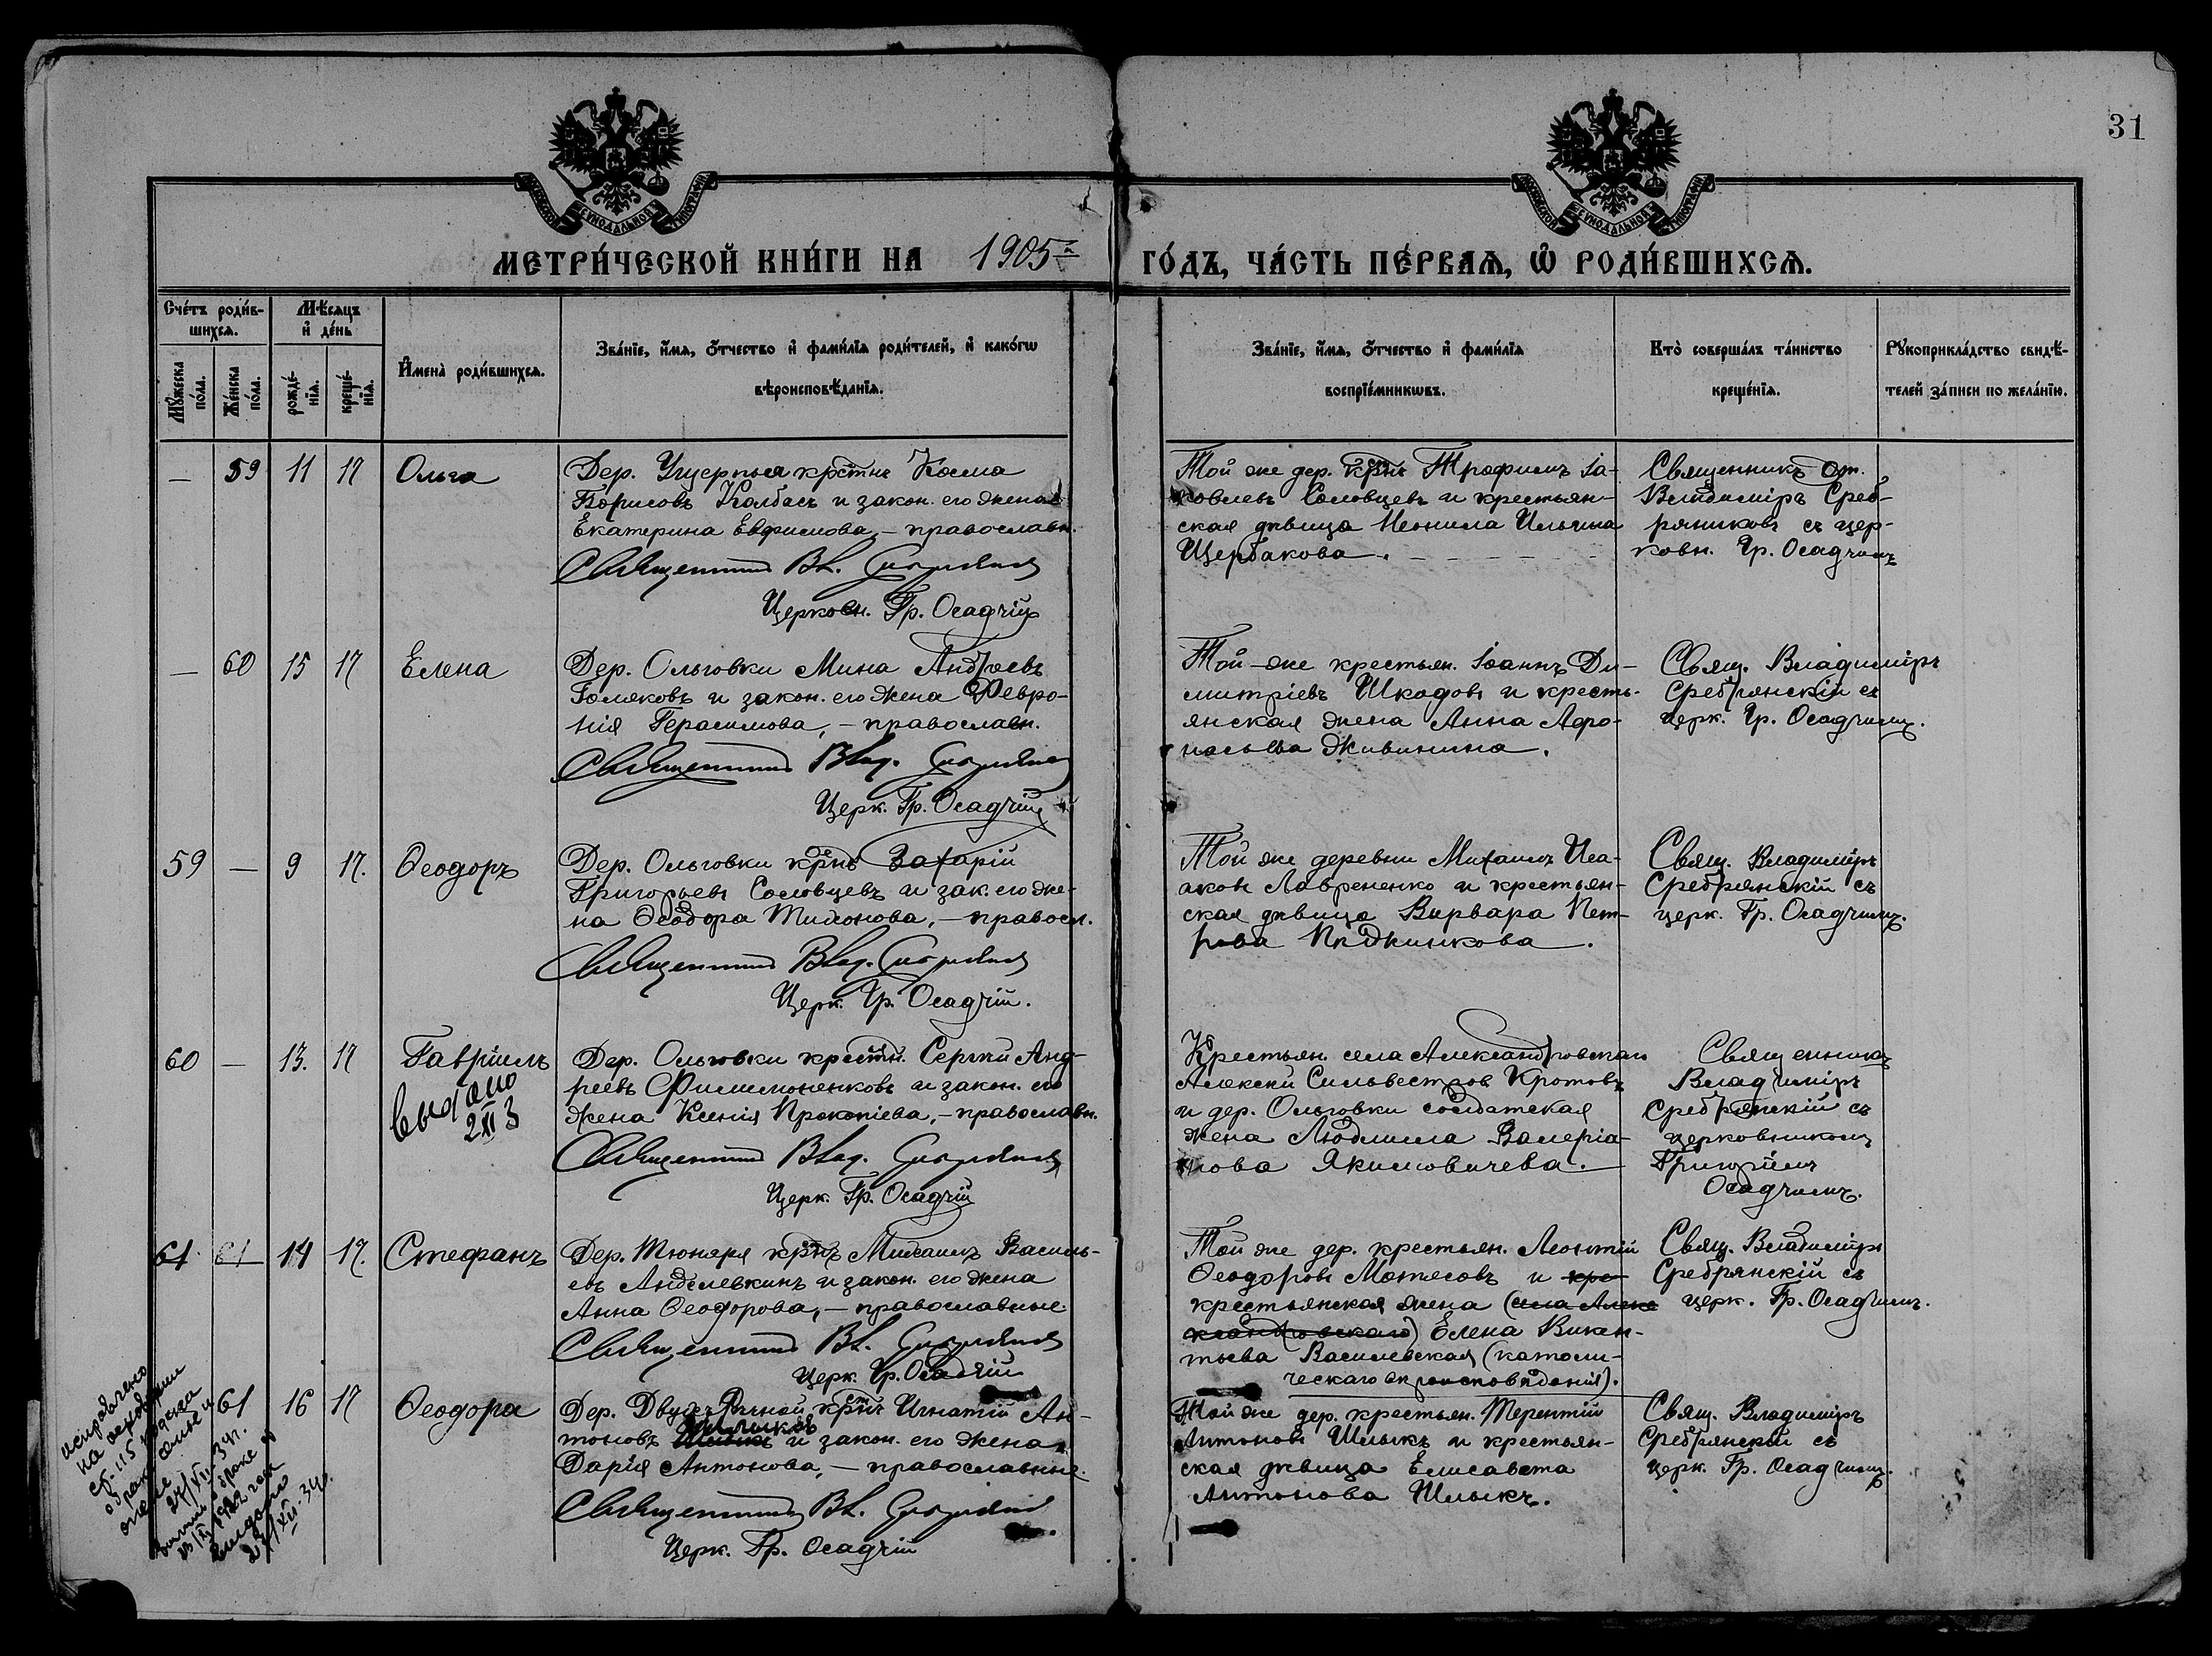 31
МОСКОВСКОЙ СѴНОДАЛЬНОЙ ТИПОГРАФІИ
МОСКОВСКОЙ СѴНОДАЛЬНОЙ ТИПОГРАФІИ
МЕТРИ́ЧЕСКОЙ КНИ́ГИ НА 1905-й ГО́ДЪ, ЧА́СТЬ ПЕ́РВАѦ, Ѽ РОДИ́ВШИХСѦ.
Сче́тъ роди́в-
шихсѧ.
Мѣ́сѧцъ
и҆ де́нь
Мꙋ́жеска
по́ла.
Же́нска
по́ла.
рожде́-
нїѧ.
креще́-
нїѧ.
И҆мена̀ роди́вшихсѧ.
Зва́нїе, и҆́мѧ, ѻ҆́тчество и҆ фами́лїѧ роди́телей, и҆ како́гѡ
вѣроисповѣ́данїѧ.
Зва́нїе, и҆́мѧ, ѻ҆́тчество и҆ фами́лїѧ
воспрїе́мникѡвъ.
Кто̀ соверша́лъ та́инство
креще́нїѧ.
Рꙋкоприкла́дство свидѣ́-
телей за́писи по жела́нїю.
— 59 11 17 Ольга
Дер. Ущерпья крстнъ Косма
Борисовъ Колбасъ и закон. его жена
Екатерина Евфимова, – православн.
Священникъ Вл.
Церковн. Гр. Осадчій
Той же дер. крнъ Трофимъ Іа-
ковлевъ Соловцевъ и крестьян-
ская дѣвица Неонила Ильина
Щербакова.
Священникъ
Владиміръ Среб-
рянский съ цер-
ковн. Гр. Осадчимъ
— 60 15 17 Елена
Дер. Ольговки Мина Андреевъ
Голяковъ и закон. его жена Февро-
нія Герасимова, – православн.
Священникъ Влад.
Церк. Гр. Осадчій
Той-же крестьян. Іоаннъ Ди-
митріевъ Шкодовъ и кресть-
янская жена Анна Афо-
насьева Живинина.
Свящ. Владиміръ
Сребрянскій съ
церк. Гр. Осадчимъ.
59 — 9 17. Ѳеодоръ
Дер. Ольговки крнъ Захарій
Григорьевъ Соловцевъ и зак. его же-
на Ѳеодора Тихонова, – правосл.
Священникъ Влад.
Церк. Гр. Осадчій.
Той же деревни Михаилъ Иса-
аковъ Лавриненко и крестьян-
ская дѣвица Варвара Пет-
рова
Свящ. Владиміръ
Сребрянскій съ
церк. Гр. Осадчимъ.
60 — 13. 17 Гавріилъ
выдано
2 XI 3
Дер. Ольговки крестн. Сергій Анд-
реевъ Филимоненковъ и закон. его
жена Ксенія Прокопіева, – православн.
Священникъ Влад.
Церк. Гр. Осадчій
Крестьян. села Александровскаго
Алексѣй Сильвестровъ Кротовъ
и дер. Ольговки солдатская
жена Людмила Валеріа-
нова Якимовичева.
Священникъ
Владиміръ
Сребрянскій съ
церковникомъ
Григоріемъ
Осадчимъ.
61 61 14 17. Стефанъ
Дер. Тюняря крнъ Михаилъ Василь-
евъ и закон. его жена
Анна Ѳеодорова, – православные
Священникъ Вл.
Церк. Гр. Осадчій
Той же дер. крестьян. Леонтій
Ѳеодоровъ Мотесовъ и кре
крестьянская жена (села Алекс
ксандровскаго) Елена Викен-
тьева Василевская (католи-
ческаго вѣроисповѣданія).
Свящ. Владиміръ
Сребрянскій съ
церк. Гр. Осадчимъ.
61 16 17 Ѳеодора
Дер. Двухъ-Рѣчной крнъ Игнатій Ан-
тоновъ и закон. его жена
Дарія Антонова, – православные.
Священникъ Вл.
Церк. Гр. Осадчій
Той же дер. крестьян. Терентій
Антоновъ Шлыкъ и крестьян-
ская дѣвица Елисавета
Антонова Шлыкъ.
Свящ. Владиміръ
Сребрянскій съ
церк. Гр. Осадчимъ.
исправлено
на основании
ст. 115 кодекса
о браке семье и
опеке
выдано